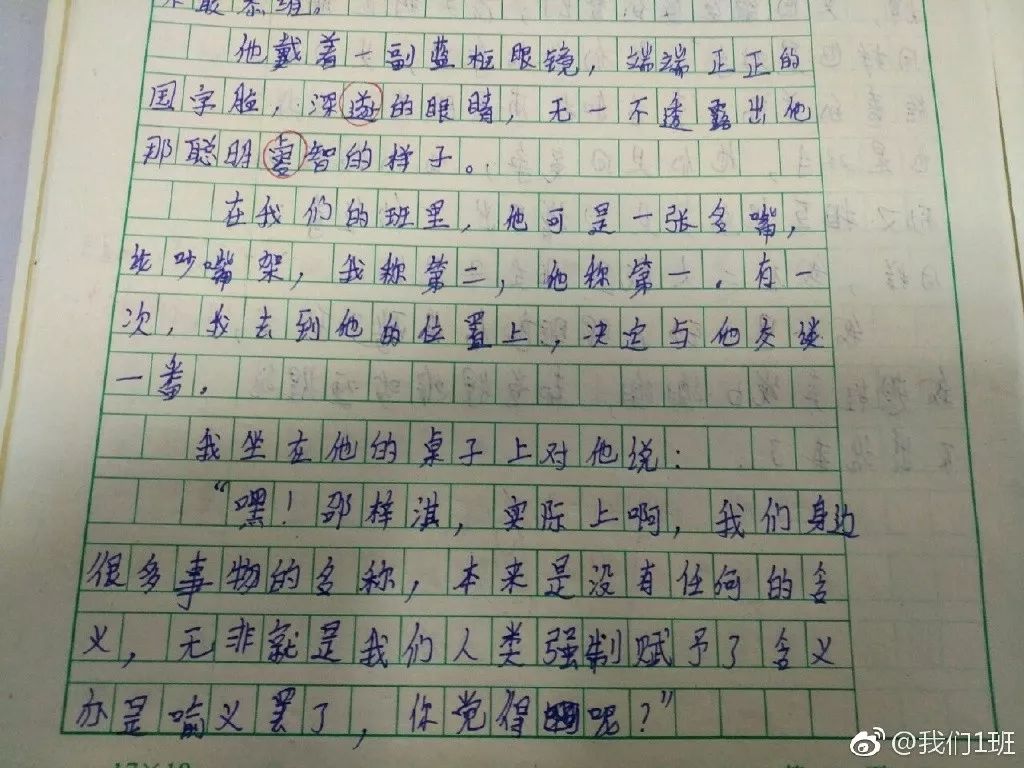 他戴着一副蓝框眼镜，端端正正的
国字脸，深邃的眼睛，无一不透露出他
那聪明睿智的样子。
在我们的班里，他可是一张名嘴，
吵嘴架，我称第二，他称第一。有一
次，我去到他的位置上，决定与他交谈
一番。
我坐在他的桌子上对他说：
“嘿！邵梓淇，实际上啊，我们身边
很多事物的名称，本来是没有任何的含
义，无非就是我们人类强制赋予了含义
亦是喻义罢了，你觉得呢？”
@我们1班